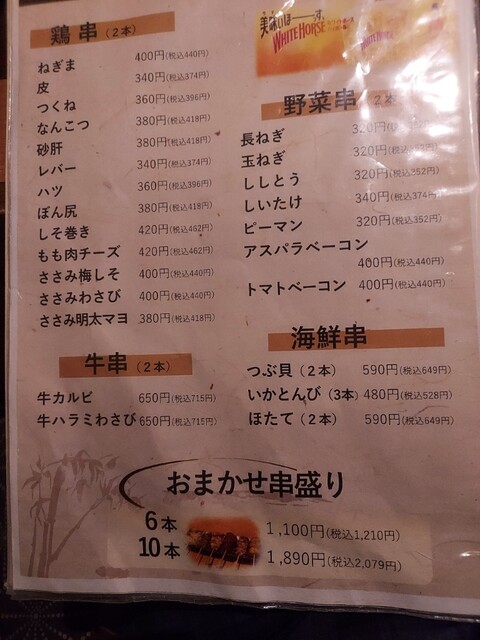 鶏串(2本)
ねぎま 400円(税込440円)
皮 340円(税込374円)
つくね 360円(税込396円)
なんこつ 380円(税込418円)
砂肝 380円(税込418円)
レバー 340円(税込374円)
ハツ 360円(税込396円)
ぼん尻 380円(税込418円)
しそ巻き 420円(税込462円)
もも肉チーズ 420円(税込462円)
ささみ梅しそ 400円(税込440円)
ささみわさび 400円(税込440円)
ささみ明太マヨ 380円(税込418円)
牛串(2本)
牛カルビ 650円(税込715円)
牛ハラミわさび 650円(税込715円)
WHITE HORSE
野菜串(2本
長ねぎ 320円
玉ねぎ 320円
ししとう 320円(税込352円)
しいたけ 340円(税込374円)
ピーマン 320円(税込352円)
アスパラベーコン
400円(税込440円)
トマトベーコン 400円(税込440円)
海鮮串
つぶ貝(2本) 590円(税込649円)
いかとんび(3本) 480円(税込528円)
ほたて(2本) 590円(税込649円)
おまかせ串盛り
6本 1,100円(税込1,210円)
10本 1,890円(税込2,079円)